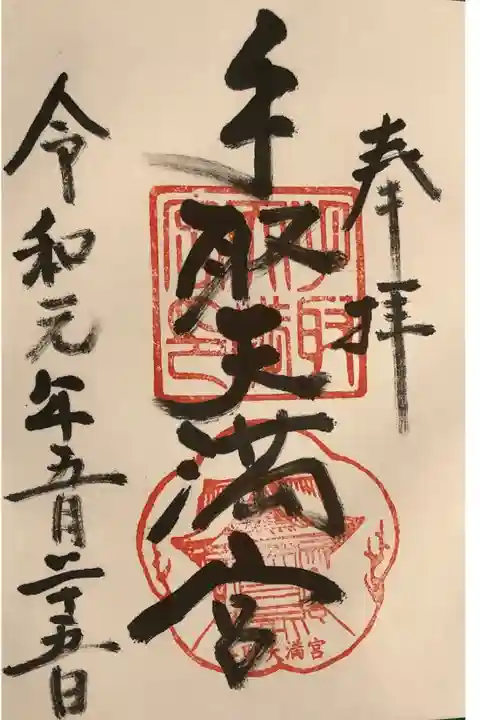 奉拝
手取天満宮
令和元年五月二十五日
天満宮